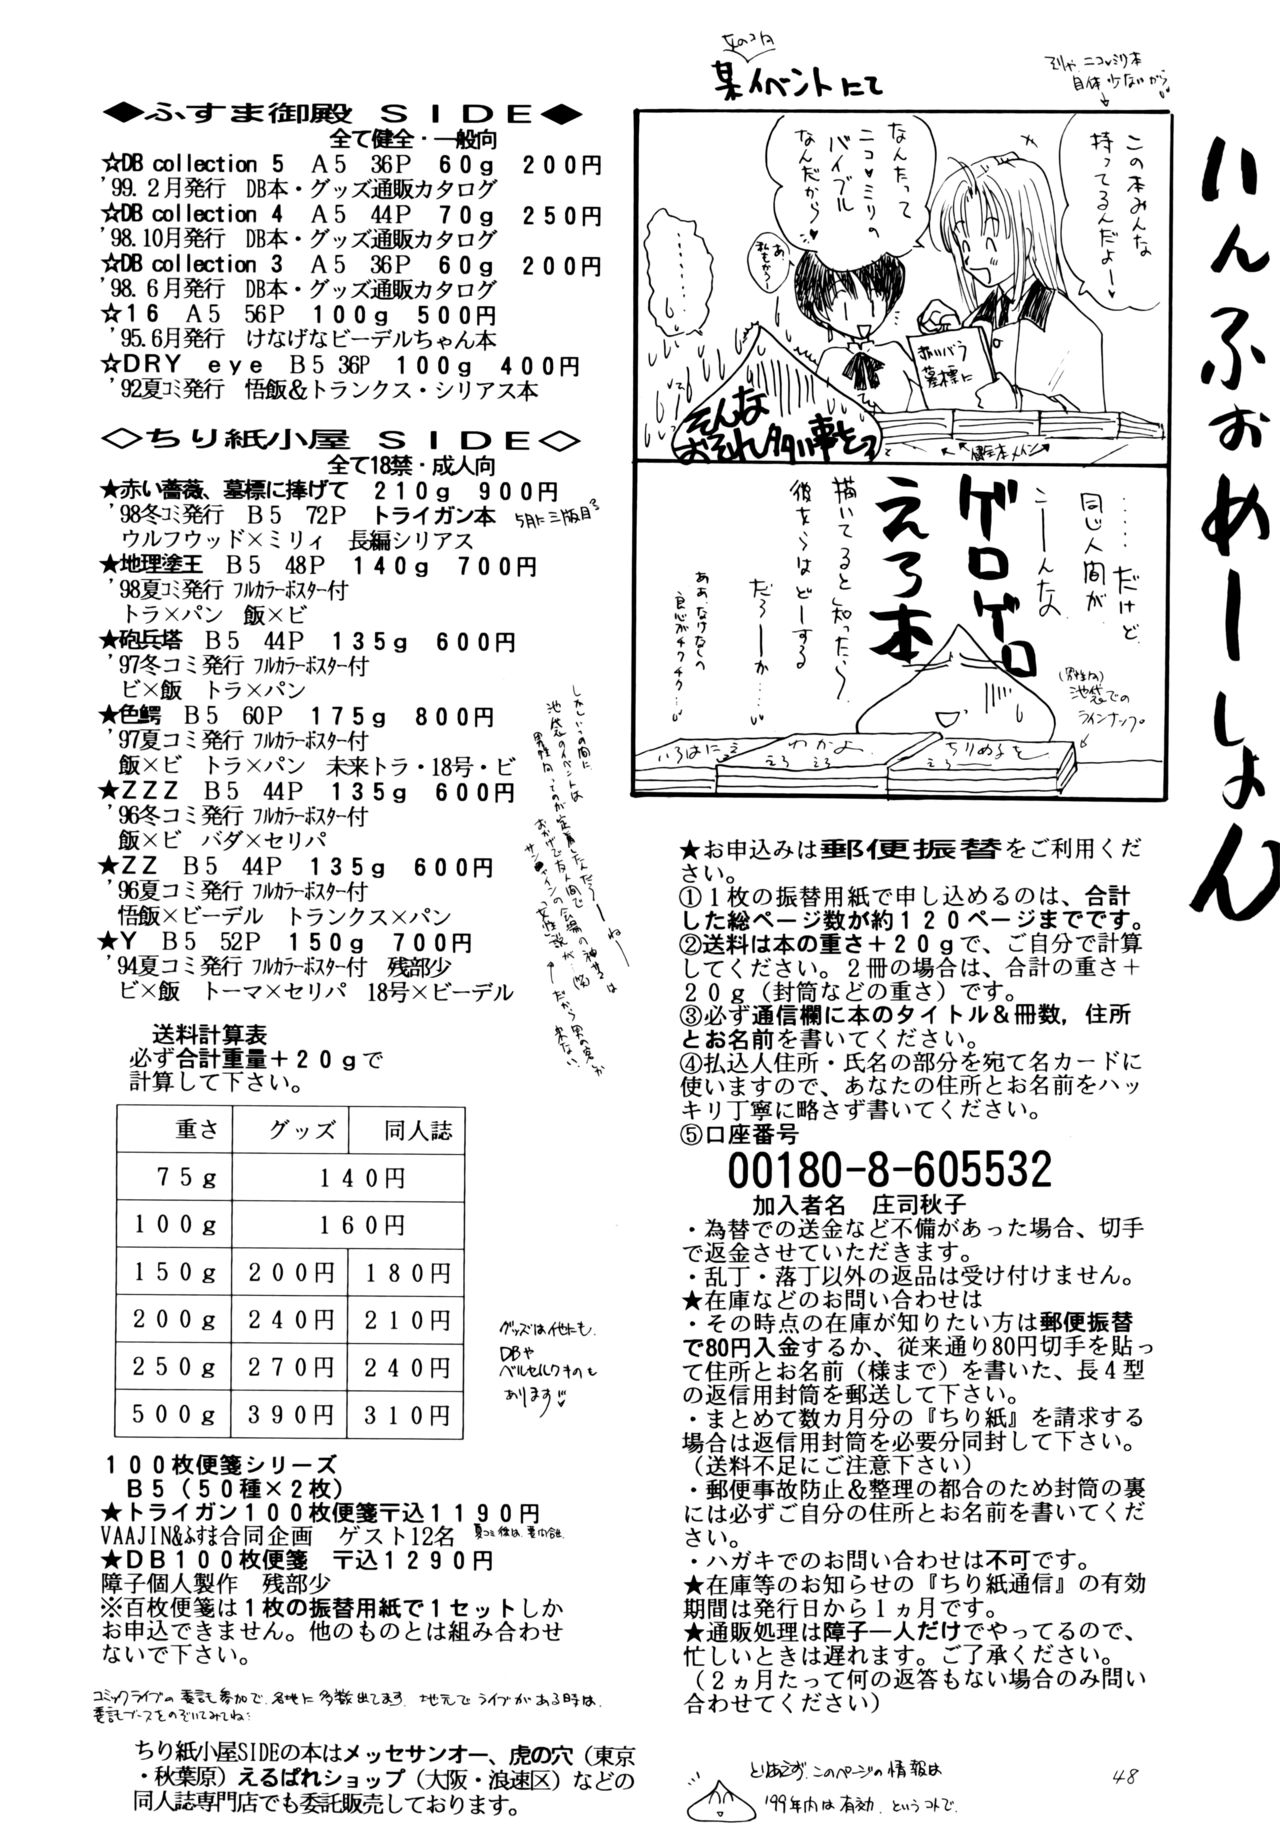 いんふぉめーしょん
◆ふすま御殿 SIDE◆
全て健全・一般向
☆DB collection 5 A5 36P 60g 200円
'99.2月発行 DB本・グッズ通販カタログ
☆DB collection 4 A5 44P 70g 250円
'98.10月発行 DB本・グッズ通販カタログ
☆DB collection 3 A5 36P 60g 200円
'98.6月発行 DB本・グッズ通販カタログ
☆16 A5 56P 100g 500円
'95.6月発行 けなげなビーデルちゃん本
☆DRY eye B5 36P 100g 400円
'92夏コミ発行 悟飯&トランクス・シリアス本
◇ちり紙小屋 SIDE◇
全て18禁・成人向
★赤い薔薇、墓標に捧げて 210g 900円
'98冬コミ発行 B5 72P トライガン本 5月に三版目
ウルフウッド×ミリィ 長編シリアス
★地理塗王 B5 48P 140g 700円
'98夏コミ発行 フルカラーポスター付
トラ×パン 飯×ビ
★砲兵塔 B5 44P 135g 600円
'97冬コミ発行 フルカラーポスター付
ビ×飯 トラ×パン
★色鰐 B5 60P 175g 800円
'97夏コミ発行 フルカラーポスター付
飯×ビ トラ×パン 未来トラ・18号・ビ
★ZZZ B5 44P 135g 600円
'96冬コミ発行 フルカラーポスター付
飯×ビ バダ×セリパ
★ZZ B5 44P 135g 600円
'96夏コミ発行 フルカラーポスター付
悟飯×ビーデル トランクス×パン
★Y B5 52P 150g 700円
'94夏コミ発行 フルカラーポスター付 残部少
ビ×飯 トーマ×セリパ 18号×ビーデル
しかしいつの間に
池袋のイベントは
男性向ってのが定着したんだろーねー
おかげで友人間で
サンシャインの会場の神サマは
女性説が…(笑)
→だから男の客が
来ない
送料計算表
必ず合計重量+20gで
計算して下さい。
重さ グッズ 同人誌
75g 140円
100g 160円
150g 200円 180円
200g 240円 210円
250g 270円 240円
500g 390円 310円
グッズは他にも
DBや
ベルセルクキのも
あります♡
100枚便箋シリーズ
B5(50種×2枚)
★トライガン100枚便箋〒込1190円
VAAJIN&ふすま合同企画 ゲスト12名
★DB100枚便箋 〒込1290円
障子個人製作 残部少
※百枚便箋は1枚の振替用紙で1セットしか
お申込できません。他のものとは組み合わせ
ないで下さい。
コミックライブの委託参加で、各地に多数出てます 地元でライブがある時は、
委託ブースをのぞいてみてね
ちり紙小屋SIDEの本はメッセサンオー、虎の穴(東京
・秋葉原)えるぱれショップ(大阪・浪速区)などの
同人誌専門店でも委託販売しております。
女のコ向
某イベントにて
そりゃ、ニコ♡ミリ本
自体少ないから
この本みんな
持ってるんだよー♡
なんたって
ニコ♡ミリの
バイブル
なんだから♡
あ、
私もかうー
………
赤いバラ
墓標に
そんな
おそれタタい事をっ
健全本メイン
……だけど
同じ人間が
こーーんな
ゲロゲロ
えろ本
描いてると知ったら
彼女らはどーする
だろーーか……
ああ、なけなしの
良心がチクチク…
(男性向)
池袋での
ラインナップ。
いろはにえ
えろ
わかよ
えろ
ちりぬるを
えろ
★お申込みは郵便振替をご利用くだ
さい。
①1枚の振替用紙で申し込めるのは、合計
した総ページ数が約120ページまでです。
②送料は本の重さ+20gで、ご自分で計算
してください。2冊の場合は、合計の重さ+
20g(封筒などの重さ)です。
③必ず通信欄に本のタイトル&冊数,住所
とお名前を書いてください。
④払込人住所・氏名の部分を宛て名カードに
使いますので、あなたの住所とお名前をハッ
キリ丁寧に略さず書いてください。
⑤口座番号
00180-8-605532
加入者名 庄司秋子
・為替での送金など不備があった場合、切手
で返金させていただきます。
・乱丁・落丁以外の返品は受け付けません。
★在庫などのお問い合わせは
・その時点の在庫が知りたい方は郵便振替
で80円入金するか、従来通り80円切手を貼っ
て住所とお名前(様まで)を書いた、長4型
の返信用封筒を郵送して下さい。
・まとめて数カ月分の『ちり紙』を請求する
場合は返信用封筒を必要分同封して下さい。
(送料不足にご注意下さい)
・郵便事故防止&整理の都合のため封筒の裏
には必ずご自分の住所とお名前を書いてくだ
さい。
・ハガキでのお問い合わせは不可です。
★在庫等のお知らせの『ちり紙通信』の有効
期間は発行日から1ヵ月です。
★通販処理は障子一人だけでやってるので、
忙しいときは遅れます。ご了承ください。
(2ヵ月たって何の返答もない場合のみ問い
合わせてください)
とりあえず、このページの情報は
'99年内は有効、というコトで
48